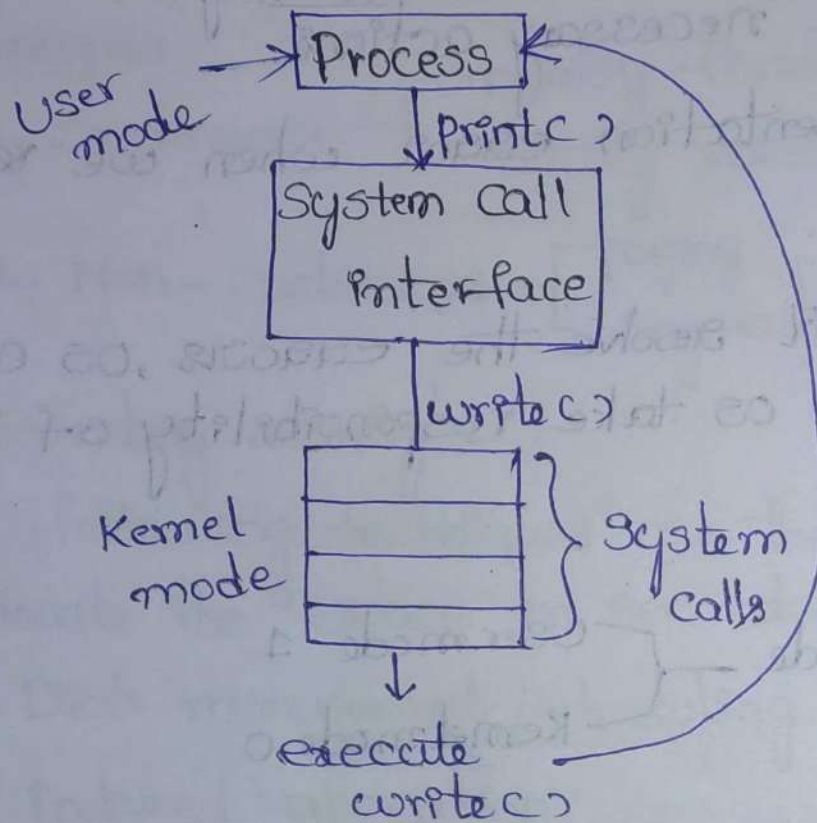 Process
User
mode
print()
System Call
interface
write()
Kernel
mode
System
calls
execute
write()